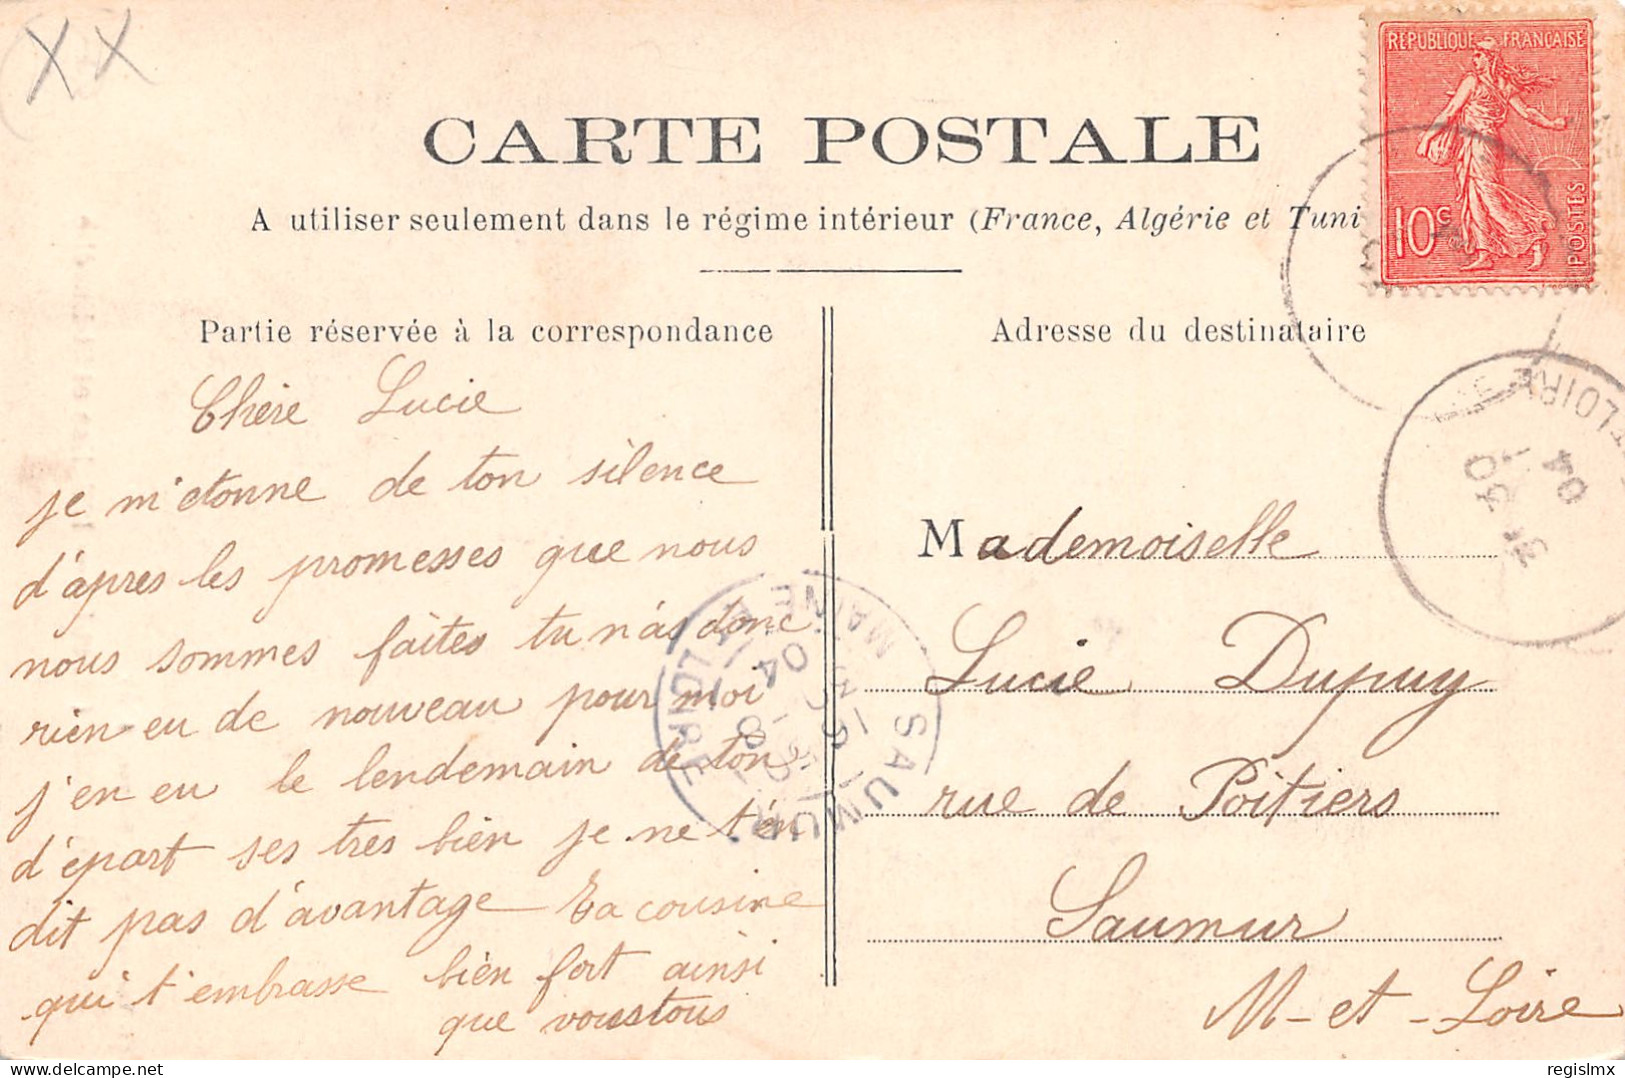 XX
CARTE POSTALE
A utiliser seulement dans le régime intérieur (France, Algérie et Tuni
REPUBLIQUE FRANÇAISE
10c
POSTES
Partie réservée à la correspondance
Chère Lucie
je m'etonne de ton silence
d'àpres les promesses que nous
nous sommes faites tu n'as donc
rien eu de nouveau pour moi
j'en eu le lendemain de ton
d'épart ses tres bien je ne t'en
dit pas d'avantage Ta cousine
qui t'embrasse bien fort ainsi
que vous tous
Adresse du destinataire
Mademoiselle
Lucie Dupuy
rue de Poitiers
Saumur
M-et-Loire
LOIRE
04
SAUMUR
MAINE
LOIRE
04
delcampe.net
regislmx